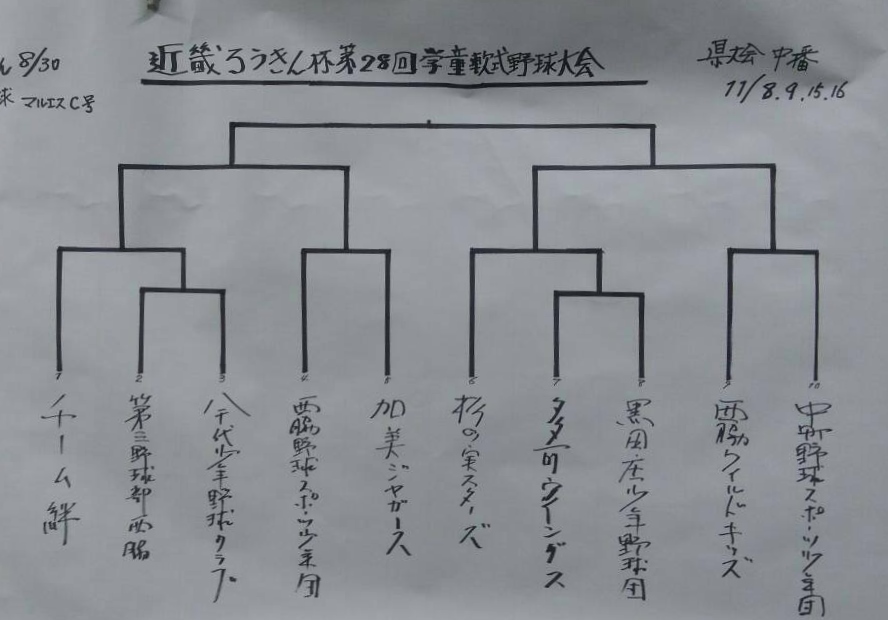 8/30
近畿ろうきん杯第28回学童軟式野球大会
県大会 中播
球 マルエスC号
11/8.9.15.16
1
2
3
4
5
6
7
8
9
10
チーム絆
第三野球部西脇
八千代少年野球クラブ
西脇野球スポーツ少年団
加美ジャガース
杉の実スターズ
黒田庄少年野球団
西脇ワイルドキッズ
中町野球スポーツ少年団